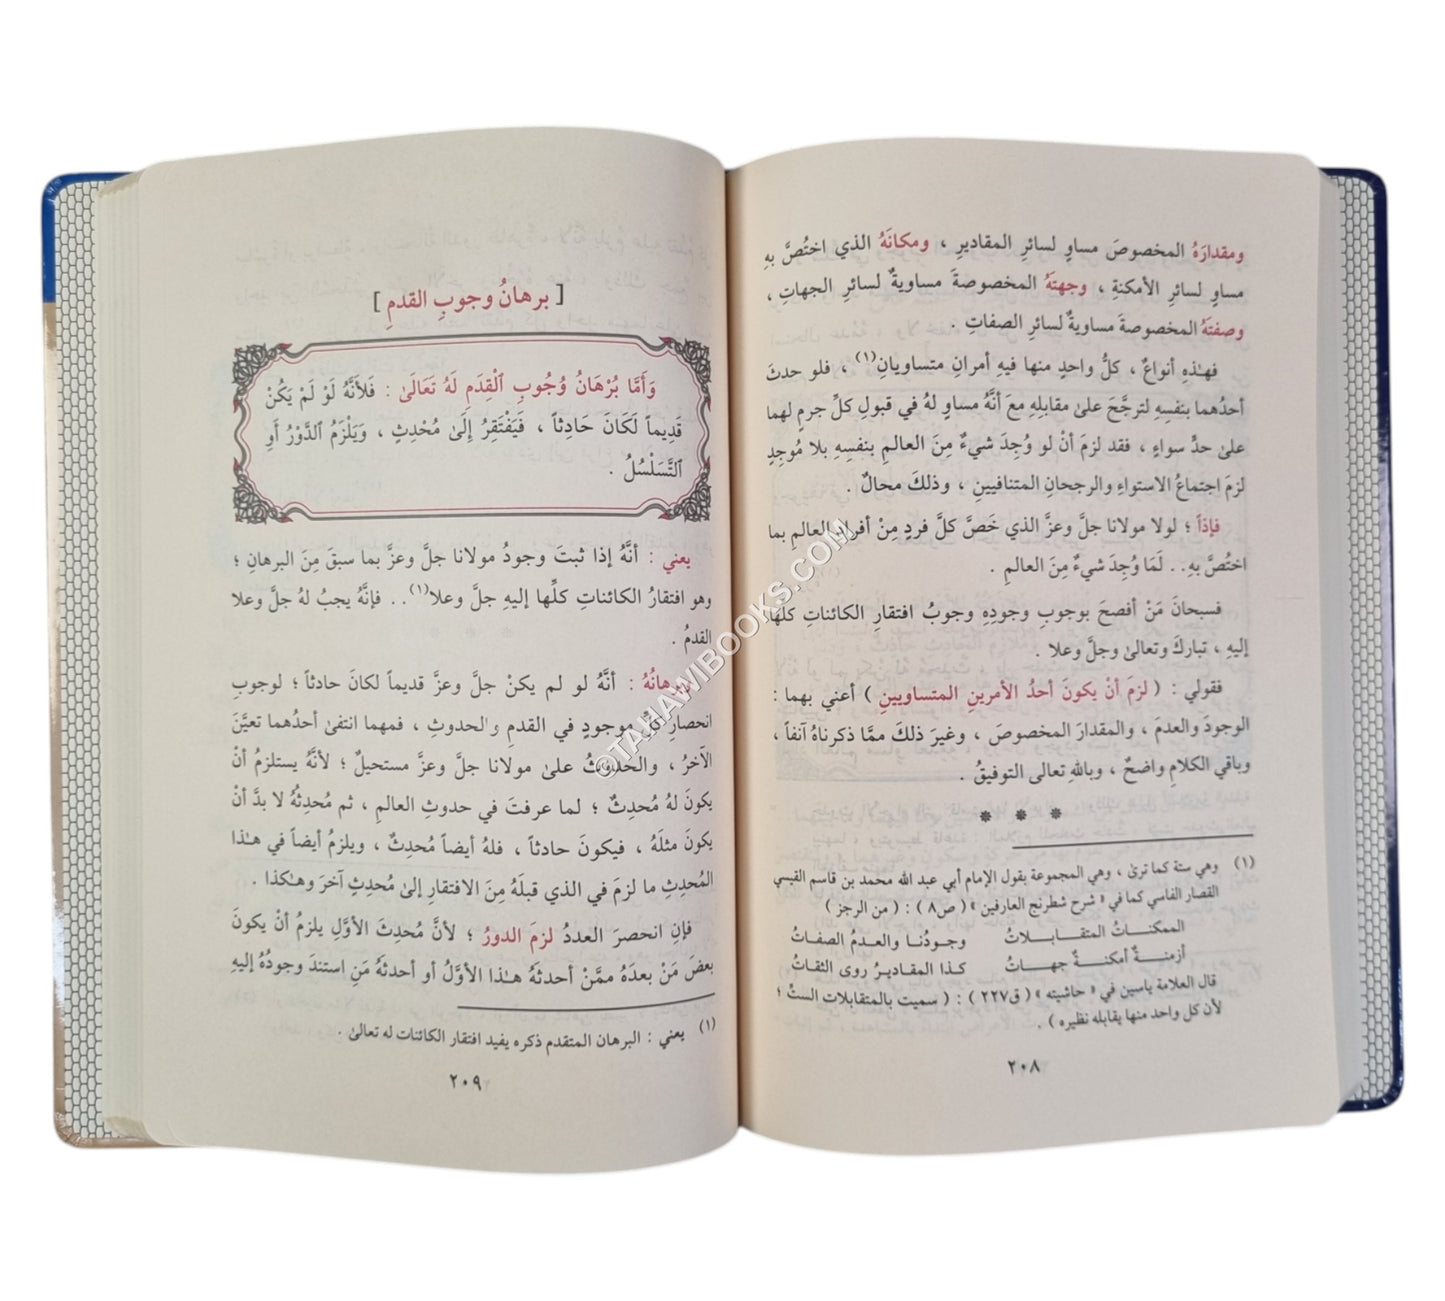 ومقدارَهُ المخصوصَ مساوٍ لسائرِ المقاديرِ ، ومكانَهُ الذي اختُصَّ بهِ
مساوٍ لسائرِ الأمكنةِ ، وجهتَهُ المخصوصةَ مساويةٌ لسائرِ الجهاتِ ،
وصفتَهُ المخصوصةَ مساويةٌ لسائرِ الصفاتِ .
فهـٰذهِ أنواعٌ ، كلُّ واحدٍ منها فيهِ أمرانِ متساويانِ(١) ، فلو حدثَ
أحدُهما بنفسِهِ لترجَّحَ علىٰ مقابلِهِ معَ أنَّهُ مساوٍ لهُ في قبولِ كلِّ جرمٍ لهما
علىٰ حدٍّ سواءٍ ، فقد لزمَ أنْ لو وُجِدَ شيءٌ مِنَ العالمِ بنفسِهِ بلا مُوجِدٍ
لزمَ اجتماعُ الاستواءِ والرجحانِ المتنافيينِ ، وذلكَ محالٌ .
فإذاً ؛ لولا مولانا جلَّ وعزَّ الذي خَصَّ كلَّ فردٍ مِنْ أفرادِ العالمِ بما
اختُصَّ بهِ.. لَمَا وُجِدَ شيءٌ مِنَ العالمِ .
فسبحانَ مَنْ أفصحَ بوجوبِ وجودِهِ وجوبُ افتقارِ الكائناتِ كلِّها
إليهِ ، تباركَ وتعالىٰ وجلَّ وعلا .
فقولي : ( لزمَ أنْ يكونَ أحدُ الأمرينِ المتساويينِ ) أعني بهما :
الوجودَ والعدمَ ، والمقدارَ المخصوصَ ، وغيرَ ذلكَ ممَّا ذكرناهُ آنفاً ،
وباقي الكلامِ واضحٌ ، وباللهِ تعالى التوفيقُ .
* * *
(١) وهي ستة كما ترىٰ ، وهي المجموعة بقول الإمام أبي عبد الله محمد بن قاسم القيسي
القصار الفاسي كما في « شرح شطرنج العارفين » ( ص٨ ) : ( من الرجز )
الممكنـاتُ المتقـابـلاتُ وجودُنـا والعـدمُ الصفـاتُ
أزمنـةٌ أمكنـةٌ جهـاتُ كذا المقـاديـرُ روى الثقـاتُ
قال العلامة ياسين في « حاشيته » ( ق٢٢٧ ) : ( سميت بالمتقابلات الستِّ ؛
لأن كل واحد منها يقابله نظيره ) .
٢٠٨
[ برهانُ وجوبِ القدمِ ]
وَأَمَّا بُرْهَانُ وُجُوبِ ٱلْقِدَمِ لَهُ تَعَالَىٰ : فَلأَنَّهُ لَوْ لَمْ يَكُنْ
قَدِيماً لَكَانَ حَادِثاً ، فَيَفْتَقِرُ إِلَىٰ مُحْدِثٍ ، وَيَلْزَمُ ٱلدَّوْرُ أَوِ
ٱلتَّسَلْسُلُ .
يعني : أنَّهُ إذا ثبتَ وجودُ مولانا جلَّ وعزَّ بما سبقَ مِنَ البرهانِ ؛
وهو افتقارُ الكائناتِ كلِّها إليهِ جلَّ وعلا(١).. فإنَّهُ يجبُ لهُ جلَّ وعلا
القدمُ .
وبرهانُهُ : أنَّهُ لو لم يكنْ جلَّ وعزَّ قديماً لكانَ حادثاً ؛ لوجوبِ
انحصارِ كلِّ موجودٍ في القدمِ والحدوثِ ، فمهما انتفىٰ أحدُهما تعيَّنَ
الآخرُ ، والحدوثُ علىٰ مولانا جلَّ وعزَّ مستحيلٌ ؛ لأنَّهُ يستلزمُ أنْ
يكونَ لهُ مُحدِثٌ ؛ لما عرفتَ في حدوثِ العالمِ ، ثم مُحدِثُهُ لا بدَّ أنْ
يكونَ مثلَهُ ، فيكونَ حادثاً ، فلهُ أيضاً مُحدِثٌ ، ويلزمُ أيضاً في هـٰذا
المُحدِثِ ما لزمَ في الذي قبلَهُ مِنَ الافتقارِ إلىٰ مُحدِثٍ آخرَ وهـٰكذا .
فإنِ انحصرَ العددُ لزمَ الدورُ ؛ لأنَّ مُحدِثَ الأوَّلِ يلزمُ أنْ يكونَ
بعضَ مَنْ بعدَهُ ممَّنْ أحدثَهُ هـٰذا الأوَّلُ أو أحدثَهُ مَنِ استندَ وجودُهُ إليهِ
(١) يعني : البرهان المتقدم ذكره يفيد افتقار الكائنات له تعالىٰ .
٢٠٩
©TAHAWIBOOKS.COM